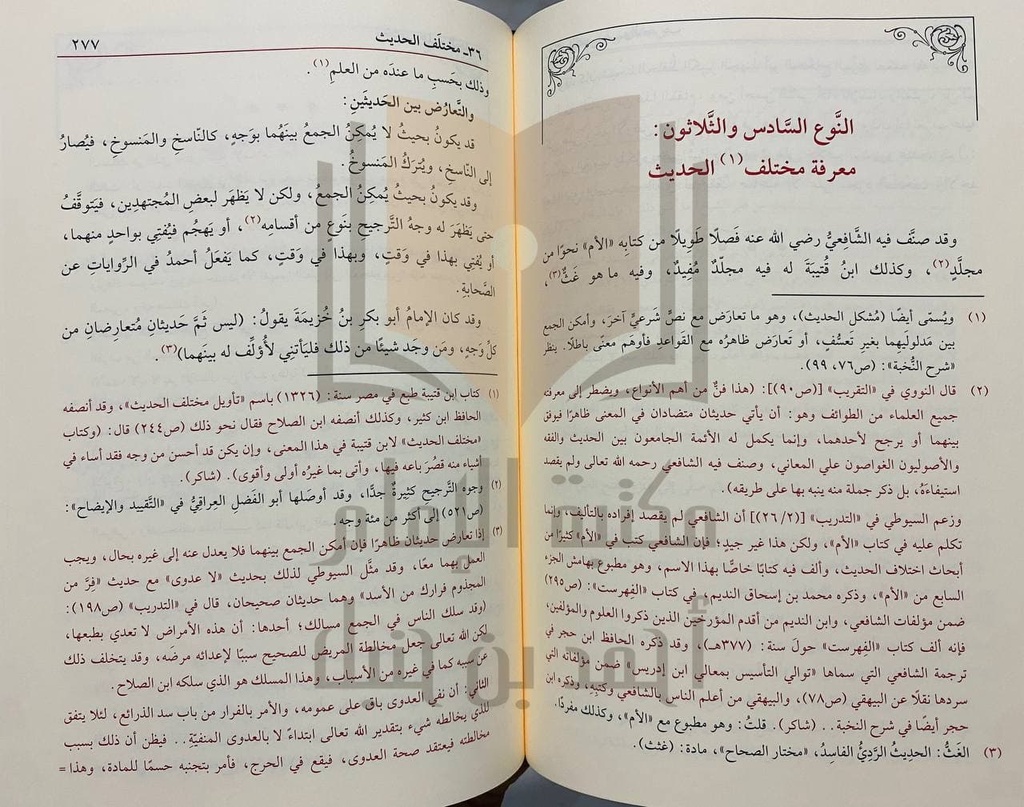 النَّوع السَّادس والثَّلاثون:
معرفة مختلف (١) الحديث
وقد صنَّف فيه الشَّافعيُّ رضي الله عنه فَصلًا طَويلًا من كتابِه «الأم» نحوًا من
مجلَّدٍ (٢)، وكذلك ابنُ قُتيبَةَ له فيه مجلّدٌ مُفِيدٌ، وفيه ما هو غَثٌّ (٣)،
(١) ويُسمّى أيضًا (مُشكل الحديث)، وهو ما تعارَضَ مع نصٍّ شَرعيٍّ آخرَ، وأمكن الجمع
بين مَدلوليهما بغيرِ تعسُّف، أو تعارَض ظاهرُه مع القَواعدِ فأوهَم معنًى باطلًا. ينظر
«شرح النُّخبة»: (ص٧٦، ٩٩).
(٢) قال النووي في «التقريب» [(ص٩٠)]: (هذا فنٌّ من أهم الأنواع، ويضطر إلى معرفته
جميع العلماء من الطوائف وهو: أن يأتي حديثان متضادان في المعنى ظاهرًا فيوفق
بينهما أو يرجح لأحدهما، وإنما يكمل له الأئمة الجامعون بين الحديث والفقه
والأصوليون الغواصون علي المعاني، وصنف فيه الشافعي رحمه الله تعالى ولم يقصد
استيفاءَهُ، بل ذكر جملة منه ينبه بها على طريقه).
وزعم السيوطي في «التدريب» [(٢٦/٢)] أن الشافعي لم يقصد إفراده بالتأليف، وإنما
تكلم عليه في كتاب «الأم»، ولكن هذا غير جيدٍ؛ فإن الشافعي كتب في «الأم» كثيرًا من
أبحاث اختلاف الحديث، وألف فيه كتابًا خاصًّا بهذا الاسم، وهو مطبوع بهامش الجزء
السابع من «الأم»، وذكره محمد بن إسحاق النديم، في كتاب «الفهرست»: (ص٢٩٥)
ضمن مؤلفات الشافعي، وابن النديم من أقدم المؤرخين الذين ذكروا العلوم والمؤلفين؛
فإنه ألف كتاب «الفِهرست» حولَ سنة: (٣٧٧هـ)، وقد ذكره الحافظ ابن حجر في
ترجمة الشافعي التي سماها «توالي التأسيس بمعالي ابن إدريس» ضمن مؤلفاته التي
سردها نقلًا عن البيهقي (ص٧٨)، والبيهقي من أعلم الناس بالشافعي وكتبِهِ، وذكره ابن
حجر أيضًا في شرح النخبة.. (شاكر). قلتُ: وهو مطبوع مع «الأم»، وكذلك مفردًا.
(٣) الغَثُّ: الحديثُ الرَّديُّ الفاسِدُ، «مختار الصحاح»، مادة: (غثث).
٣٦ـ مختلَف الحديث
٢٧٧
وذلك بحَسبِ ما عندَه من العلمِ (١).
والتَّعارُض بين الحَديثَينِ:
قد يكونُ بحيثُ لا يُمكِنُ الجمعُ بينَهُما بوَجهٍ، كالنَّاسخِ والمَنسوخِ، فيُصارُ
إلى النَّاسخِ، ويُترَكُ المَنسوخُ.
وقد يكونُ بحيثُ يُمكِنُ الجمعُ، ولكن لا يَظهَر لبعضِ المُجتهدِين، فيَتوقَّفُ
حتى يَظهَرَ له وجهُ التَّرجيحِ بنَوعٍ من أقسامِه (٢)، أو يَهجُم فيُفتِي بواحدٍ منهما،
أو يُفتِي بهذا في وَقتٍ، وبهذا في وَقتٍ، كما يَفعَلُ أحمدُ في الرِّواياتِ عن
الصَّحابةِ.
وقد كان الإمامُ أبو بكرِ بنُ خُزَيمَةَ يقولُ: (ليس ثَمَّ حَديثانِ مُتعارِضان من
كلِّ وَجهٍ، ومَن وجَد شيئًا من ذلك فليَأتِني لأُؤلِّف له بينَهما) (٣).
(١) كتاب ابن قتيبة طبع في مصر سنة: (١٣٢٦) باسم «تأويل مختلف الحديث»، وقد أنصفه
الحافظ ابن كثير، وكذلك أنصفه ابن الصلاح فقال نحو ذلك (ص٢٤٤) قال: (وكتاب
«مختلف الحديث» لابن قتيبة في هذا المعنى، وإن يكن قد أحسن من وجه فقد أساء في
أشياء منه قصُرَ باعه فيها، وأتى بما غيرُه أولى وأقوى). (شاكر).
(٢) وجوه التَّرجيح كثيرةٌ جدًّا، وقد أوصَلها أبو الفَضلِ العراقِيُّ في «التَّقييد والإيضاح»:
(ص٥٢١) إلى أكثر من مئة وجه.
(٣) إذا تعارض حديثان ظاهرًا فإن أمكن الجمع بينهما فلا يعدل عنه إلى غيره بحال، ويجب
العمل بهما معًا، وقد مثَّل السيوطي لذلك بحديث «لا عدوى» مع حديث «فِرَّ من
المجذوم فرارك من الأسد» وهما حديثان صحيحان، قال في «التدريب» (ص١٩٨):
(وقد سلك الناس في الجمع مسالك؛ أحدها: أن هذه الأمراض لا تعدي بطبعها،
لكن الله تعالى جعل مخالطة المريض للصحيح سببًا لإعدائه مرضَه، وقد يتخلف ذلك
عن سببه كما في غيره من الأسباب، وهذا المسلك هو الذي سلكه ابن الصلاح.
الثاني: أن نفي العدوى باق على عمومه، والأمر بالفرار من باب سد الذرائع، لئلا يتفق
للذي يخالطه شيء بتقدير الله تعالى ابتداءً لا بالعدوى المنفيَّة.. فيظن أن ذلك بسبب
مخالطته فيعتقد صحة العدوى، فيقع في الحرج، فأمر بتجنبه حسمًا للمادة، وهذا =
مكتبة الإمام
أحمد بن حنبل